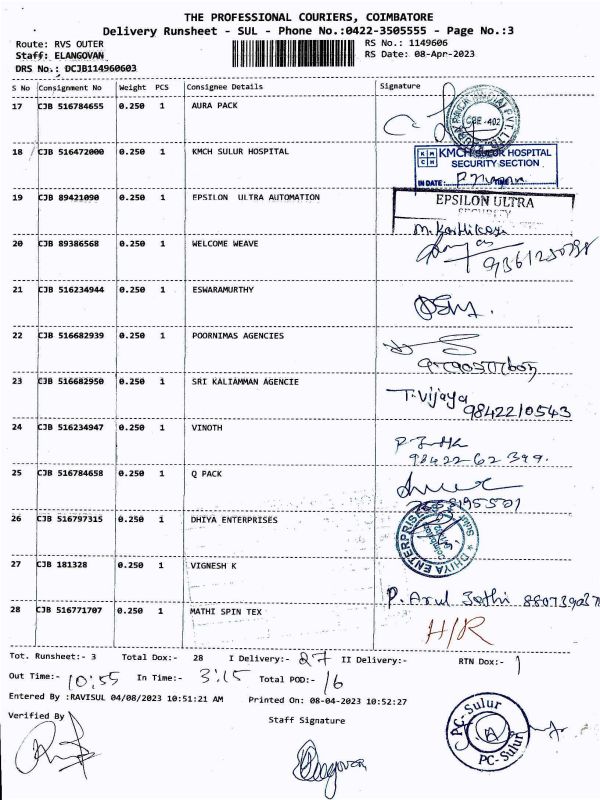 THE PROFESSIONAL COURIERS, COIMBATORE
Delivery Runsheet - SUL - Phone No.:0422-3505555 - Page No.:3
Route: RVS OUTER RS No.: 1149606
Staff: ELANGOVAN RS Date: 08-Apr-2023
DRS No.: DCJB114960603
S No Consignment No Weight PCS Consignee Details Signature
17 CJB 516784655 0.250 1 AURA PACK
CBE -402
18 CJB 516472000 0.250 1 KMCH SULUR HOSPITAL KMCH SULUR HOSPITAL
SECURITY SECTION
IN DATE:
19 CJB 89421090 0.250 1 EPSILON ULTRA AUTOMATION EPSILON ULTRA
SECURITY
M. Karthikeya
20 CJB 89386568 0.250 1 WELCOME WEAVE
21 CJB 516234944 0.250 1 ESWARAMURTHY
22 CJB 516682939 0.250 1 POORNIMAS AGENCIES
23 CJB 516682950 0.250 1 SRI KALIAMMAN AGENCIE T. Vijaya
9842210543
24 CJB 516234947 0.250 1 VINOTH
98422-62399.
25 CJB 516784658 0.250 1 Q PACK
26 CJB 516797315 0.250 1 DHIYA ENTERPRISES DHIYA ENTERPRISES Sulur
27 CJB 181328 0.250 1 VIGNESH K
P. Arul Jothi
28 CJB 516771707 0.250 1 MATHI SPIN TEX H/R
Tot. Runsheet:- 3 Total Dox:- 28 I Delivery:- 27 II Delivery:- RTN Dox:- 1
Out Time:- 10:55 In Time:- 3:15 Total POD:- 16
Entered By :RAVISUL 04/08/2023 10:51:21 AM Printed On: 08-04-2023 10:52:27
Verified By Staff Signature
PC-Sulur A PC-Sulur
Elangovan